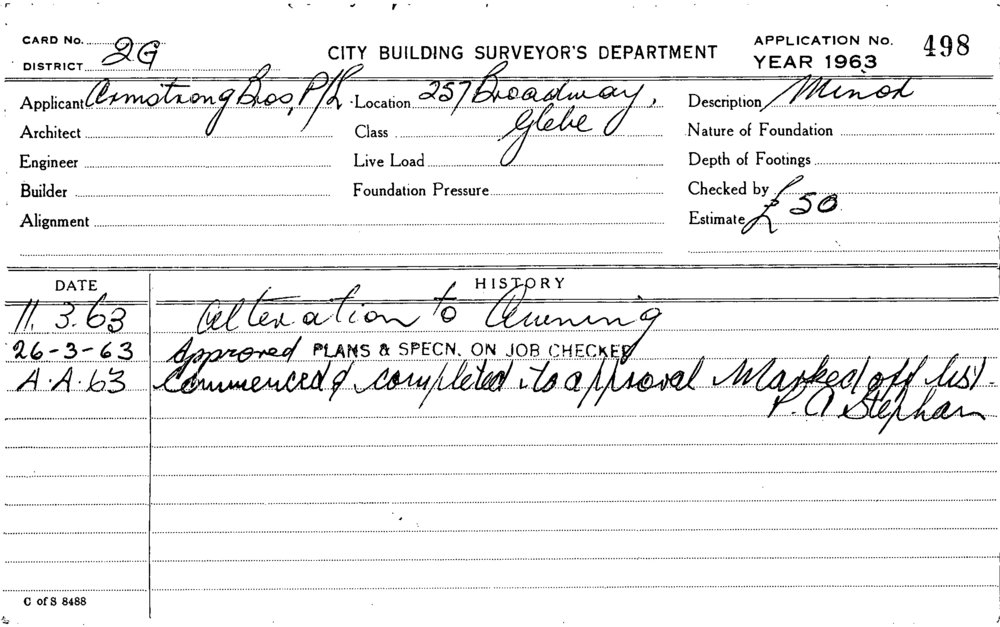 CARD No.
DISTRICT 2G
CITY BUILDING SURVEYOR'S DEPARTMENT
APPLICATION No. 498
YEAR 1963
Applicant Armstrong Bros, P/L Location 257 Broadway, Description Minor
Glebe
Architect Class Nature of Foundation
Engineer Live Load Depth of Footings
Builder Foundation Pressure Checked by
Alignment Estimate £50
DATE HISTORY
11.3.63 Alteration to Awning
26-3-63 Approved PLANS & SPECN. ON JOB CHECKED
4.4.63 Commenced & completed to approval Marked off list.
P. A Stephan
C of S 8488